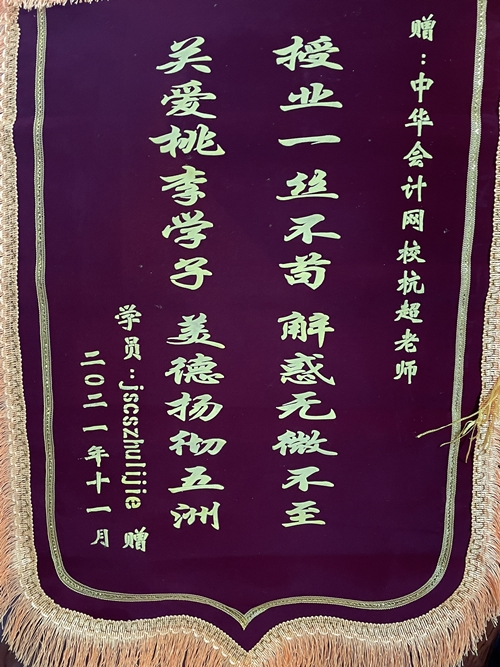 赠：中华会计网校杭超老师
授业一丝不苟 解惑无微不至
关爱桃李学子 美德扬彻五洲
学员：jscszhullijie 赠
二〇二一年十一月